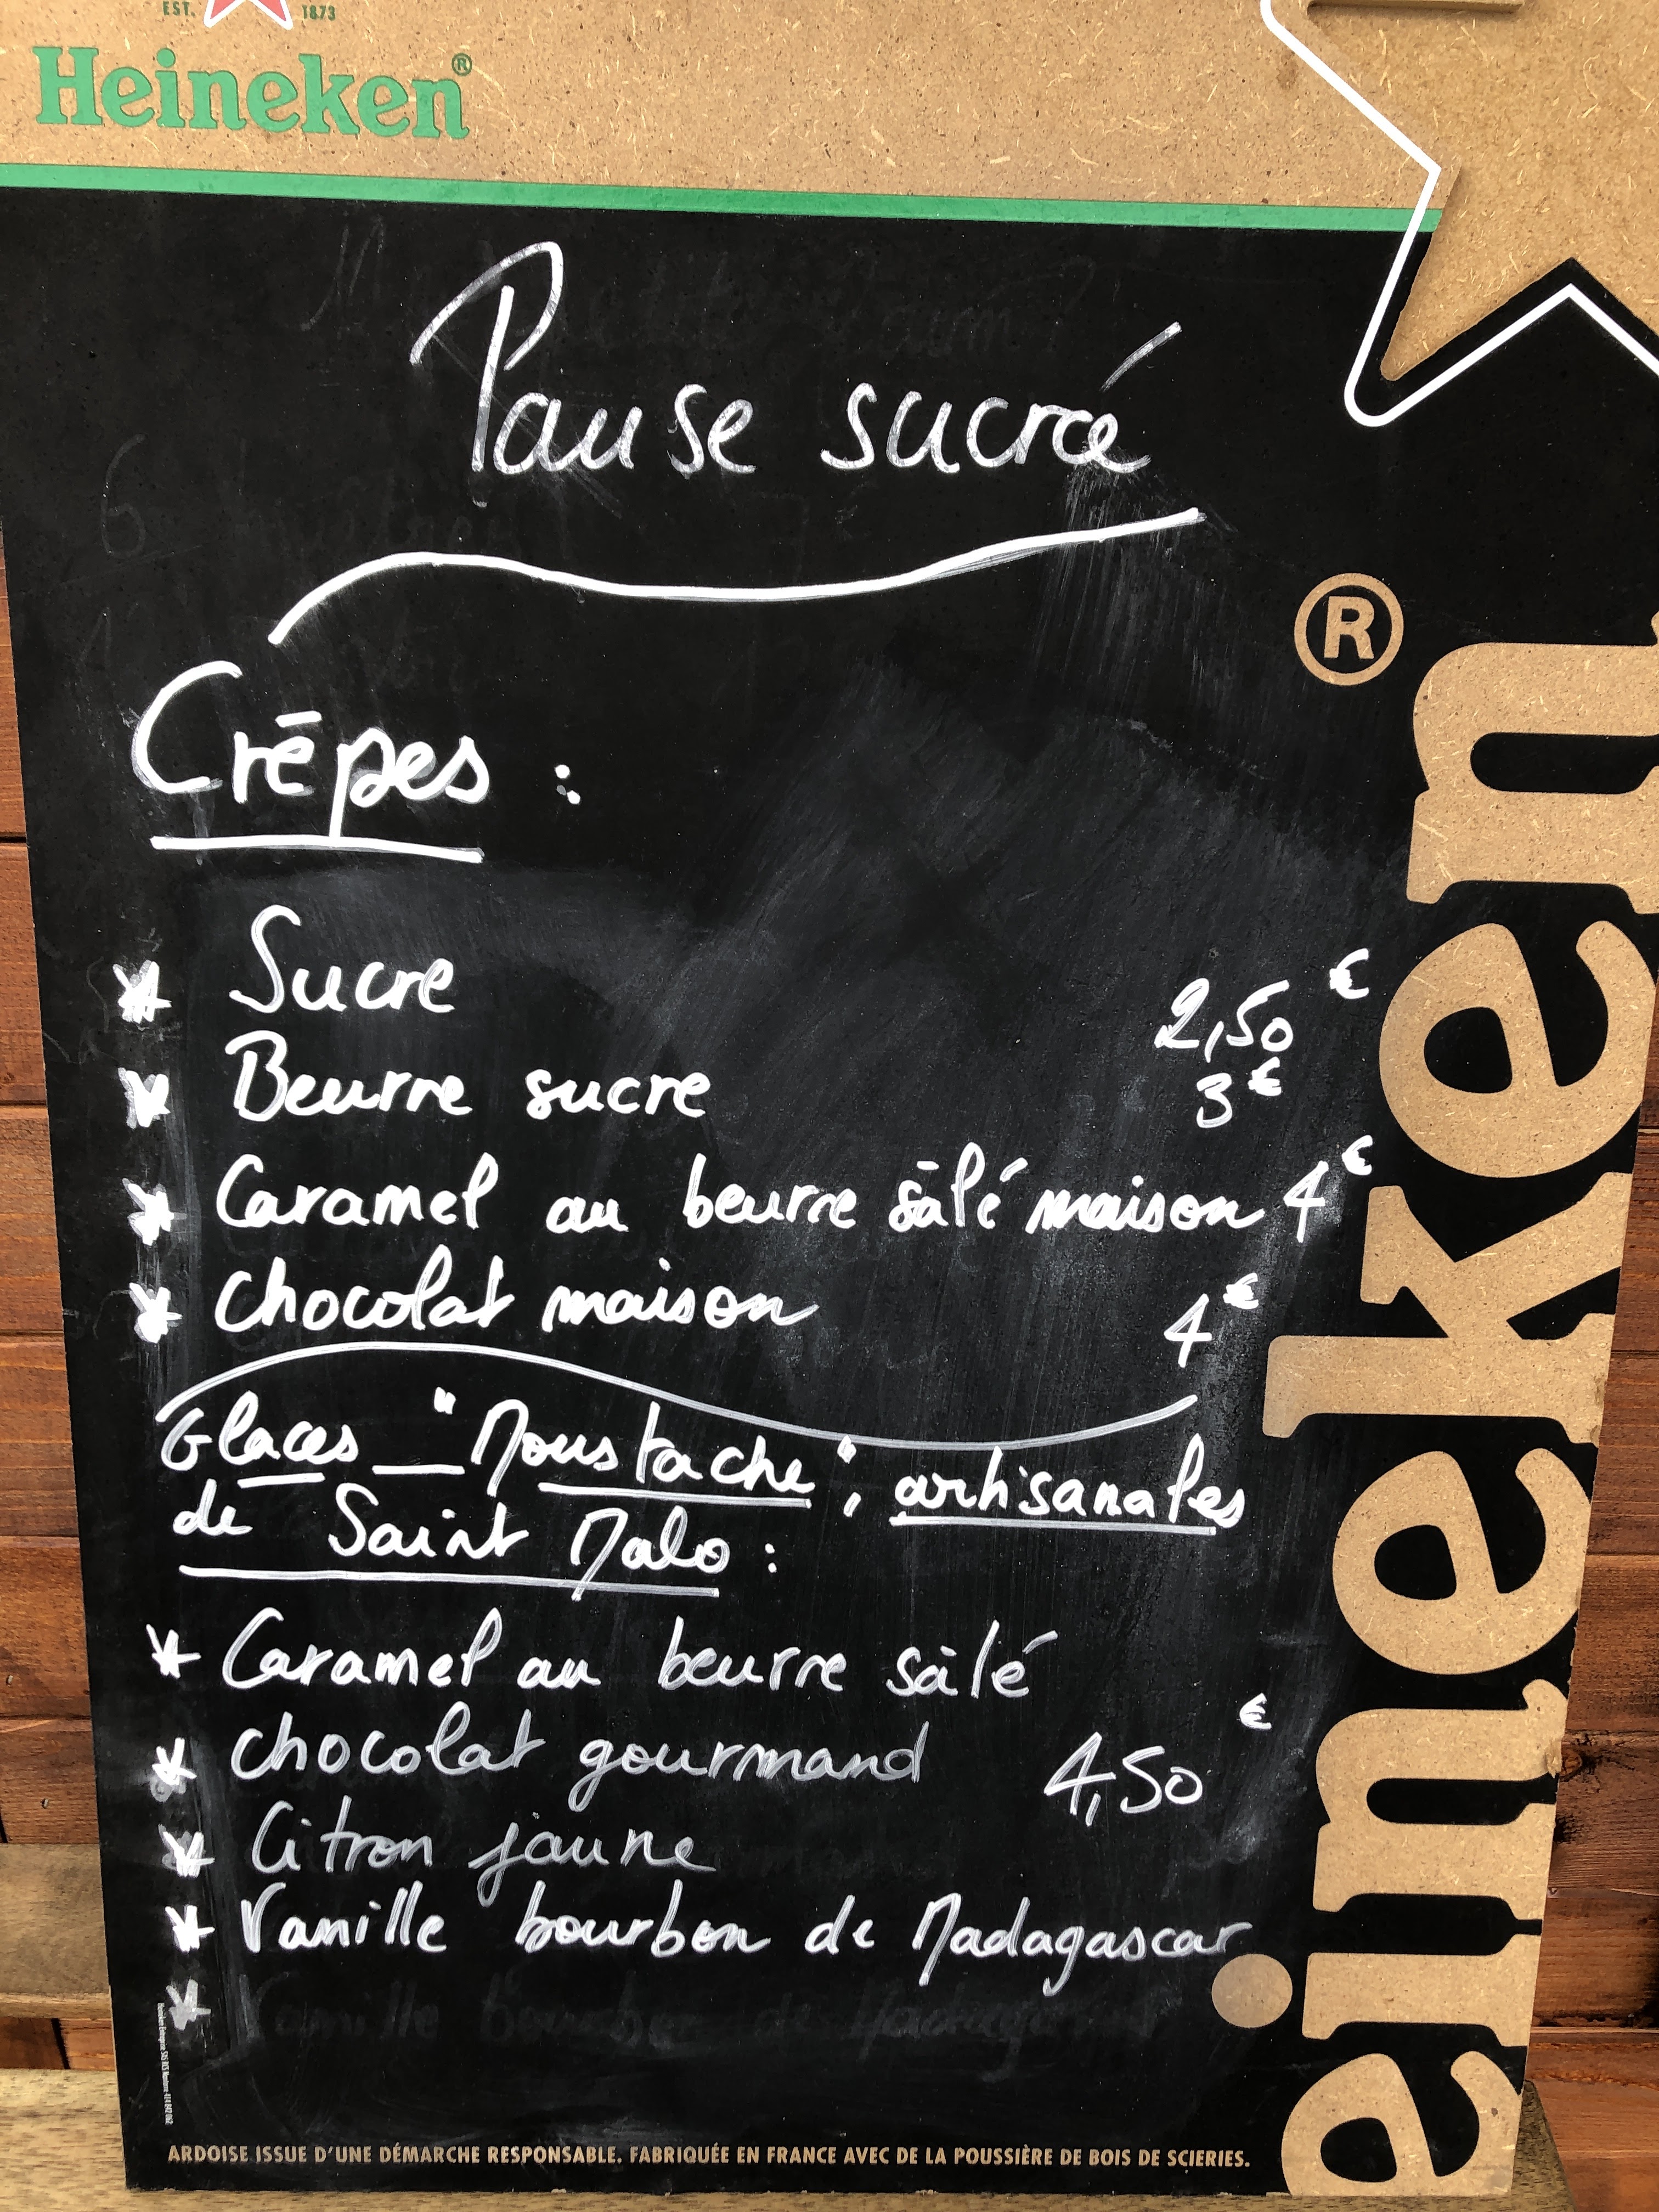 EST. 1873
Heineken®
Pause sucré
Crêpes :
* Sucre 2,50 €
* Beurre sucre 3 €
* Caramel au beurre sâlé maison 4 €
* chocolat maison 4 €
Glaces "Moustache", artisanales
de Saint Malo :
* Caramel au beurre sâlé
* chocolat gourmand 4,50 €
* Citron jaune
* Vanille bourbon de Madagascar
*
ARDOISE ISSUE D'UNE DÉMARCHE RESPONSABLE. FABRIQUÉE EN FRANCE AVEC DE LA POUSSIÈRE DE BOIS DE SCIERIES.
eineken®